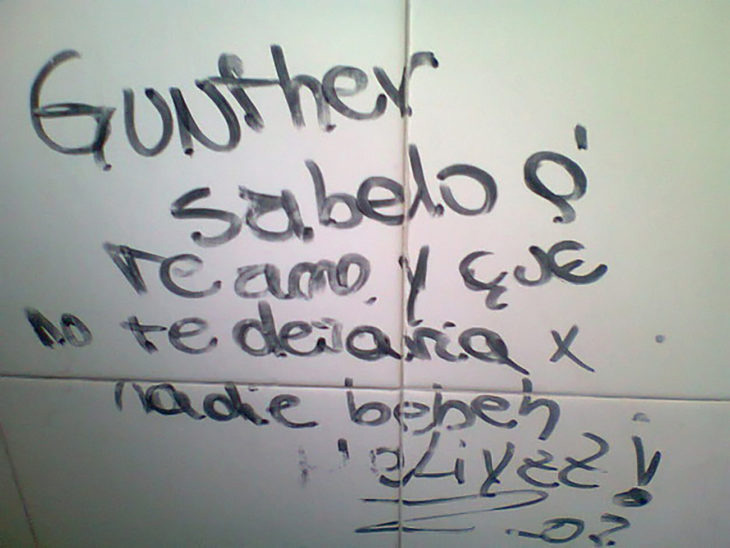 GUNther
sabelo q'
te amo y que
no te dejaria x
nadie bebeh